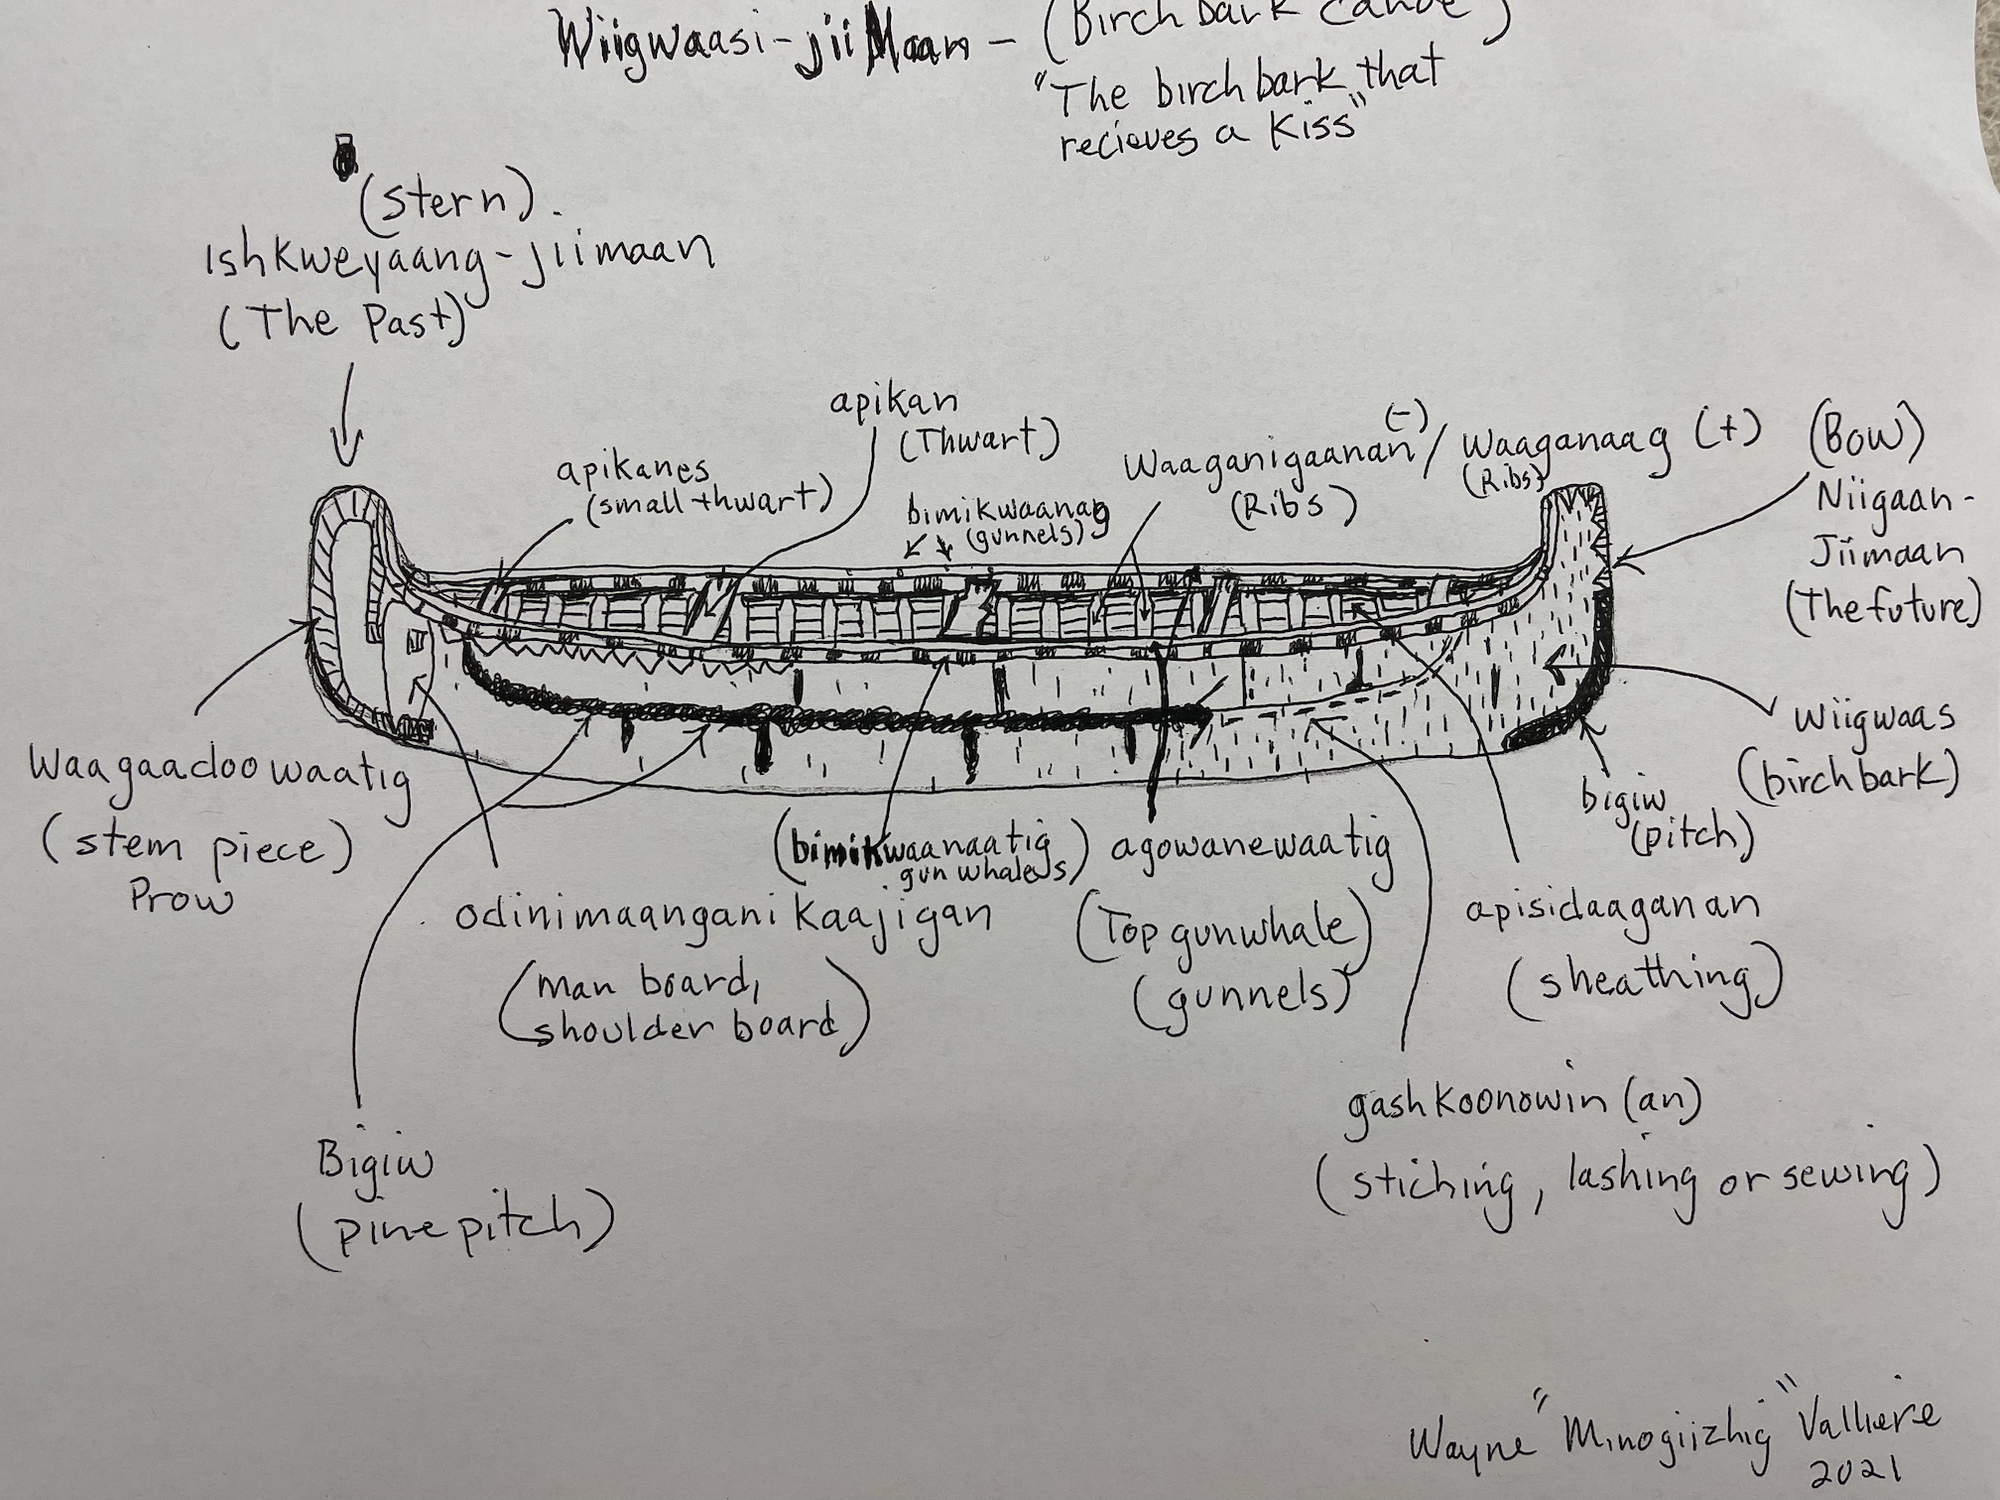 Wiigwaasi-jiiMaan - (Birch bark canoe)
"The birch bark that
recieves a Kiss"
(stern).
Ishkweyaang-jiimaan
(The Past)
apikan
(Thwart)
apikanes
(small thwart)
bimikwaanag
(gunnels)
Waaganigaanan (-) / Waaganaag (+)
(Ribs)
(Ribs)
(Bow)
Niigaan-
Jiimaan
(The future)
Waagaadoowaatig
(stem piece)
Prow
wiigwaas
(birch bark)
bigiw
(pitch)
(bimikwaanaatig
gunwhales)
agowanewaatig
(Top gunwhale)
(gunnels)
odinimaanganikaajigan
(man board,
shoulder board)
apisidaaganan
(sheathing)
gashkoonowin (an)
(stiching, lashing or sewing)
Bigiw
(pine pitch)
Wayne "Minogiizhig" Valliere
2021